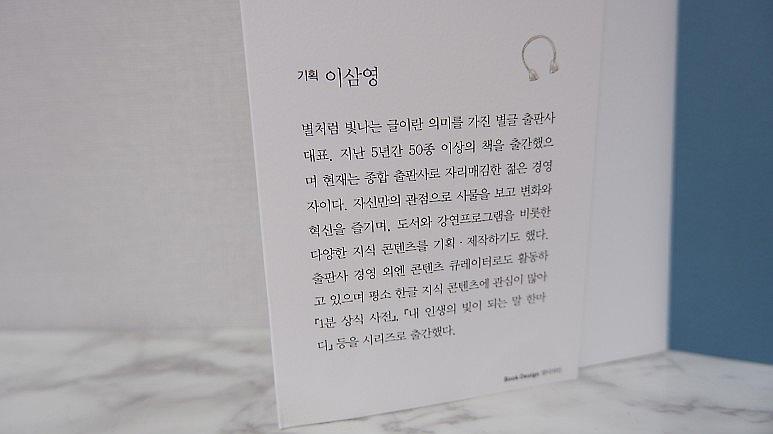 기획 이삼영
별처럼 빛나는 글이란 의미를 가진 별글 출판사
대표. 지난 5년간 50종 이상의 책을 출간했으
며 현재는 종합 출판사로 자리매김한 젊은 경영
자이다. 자신만의 관점으로 사물을 보고 변화와
혁신을 즐기며, 도서와 강연프로그램을 비롯한
다양한 지식 콘텐츠를 기획 · 제작하기도 했다.
출판사 경영 외엔 콘텐츠 큐레이터로도 활동하
고 있으며 평소 한글 지식 콘텐츠에 관심이 많아
『1분 상식 사전』, 『내 인생의 빛이 되는 말 한마
디』 등을 시리즈로 출간했다.
Book Design